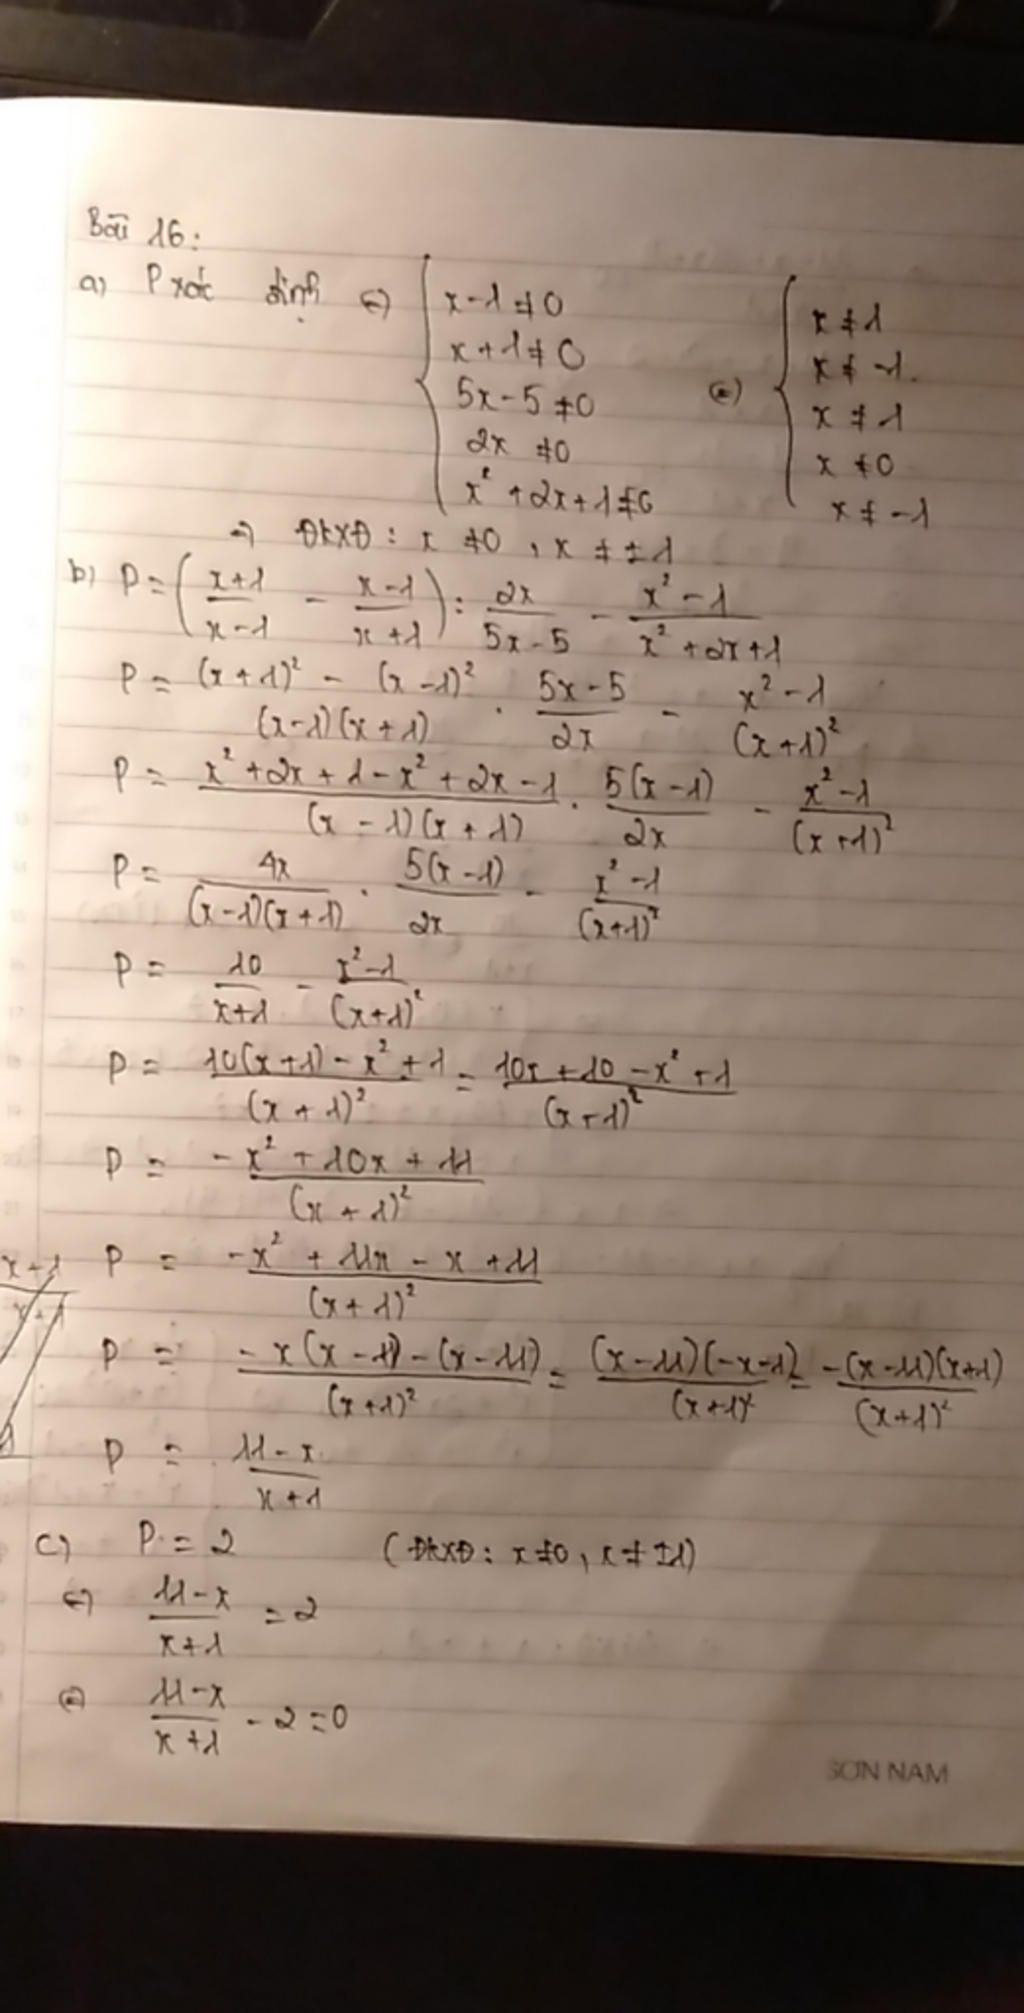 Bài 16:
a) P xác định <=> { x-1≠0 <=> { x≠1
x+1≠0 x≠-1.
5x-5≠0 x≠1
2x ≠0 x≠0
x²+2x+1≠0 x≠-1
=> ĐKXĐ: x≠0, x≠±1
b) P=((x+1)/(x-1) - (x-1)/(x+1)) : 2x/(5x-5) - (x²-1)/(x²+2x+1)
P = ((x+1)² - (x-1)²)/((x-1)(x+1)) . (5x-5)/2x - (x²-1)/(x+1)²
P = (x²+2x+1-x²+2x-1)/((x-1)(x+1)) . 5(x-1)/2x - (x²-1)/(x+1)²
P = 4x/((x-1)(x+1)) . 5(x-1)/2x - (x²-1)/(x+1)²
P = 10/(x+1) - (x²-1)/(x+1)²
P = (10(x+1)-x²+1)/(x+1)² = (10x+10-x²+1)/(x+1)²
P = (-x²+10x+11)/(x+1)²
P = (-x²+11x-x+11)/(x+1)²
P = (-x(x-11)-(x-11))/(x+1)² = (x-11)(-x-1)/(x+1)² = -(x-11)(x+1)/(x+1)²
P = (11-x)/(x+1)
c) P = 2 (ĐKXĐ: x≠0, x≠±1)
<=> (11-x)/(x+1) = 2
<=> (11-x)/(x+1) - 2=0
SON NAM